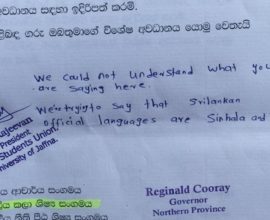 අවධානය සඳහා ඉදිරිපත් කරමි.
ගරු ඔබතුමාගේ විශේෂ අවධානය යොමු වෙතැයි
we could not understand what you
are saying here.
We're trying to say that Srilankan
official languages are Sinhala and
President
Students Union
University of Jaffna.
ආචාර්ය සංගමය
කලා ශිෂ්‍ය සංගමය
පීඨ ශිෂ්‍ය සංගමය
Reginald Cooray
Governor
Northern Province